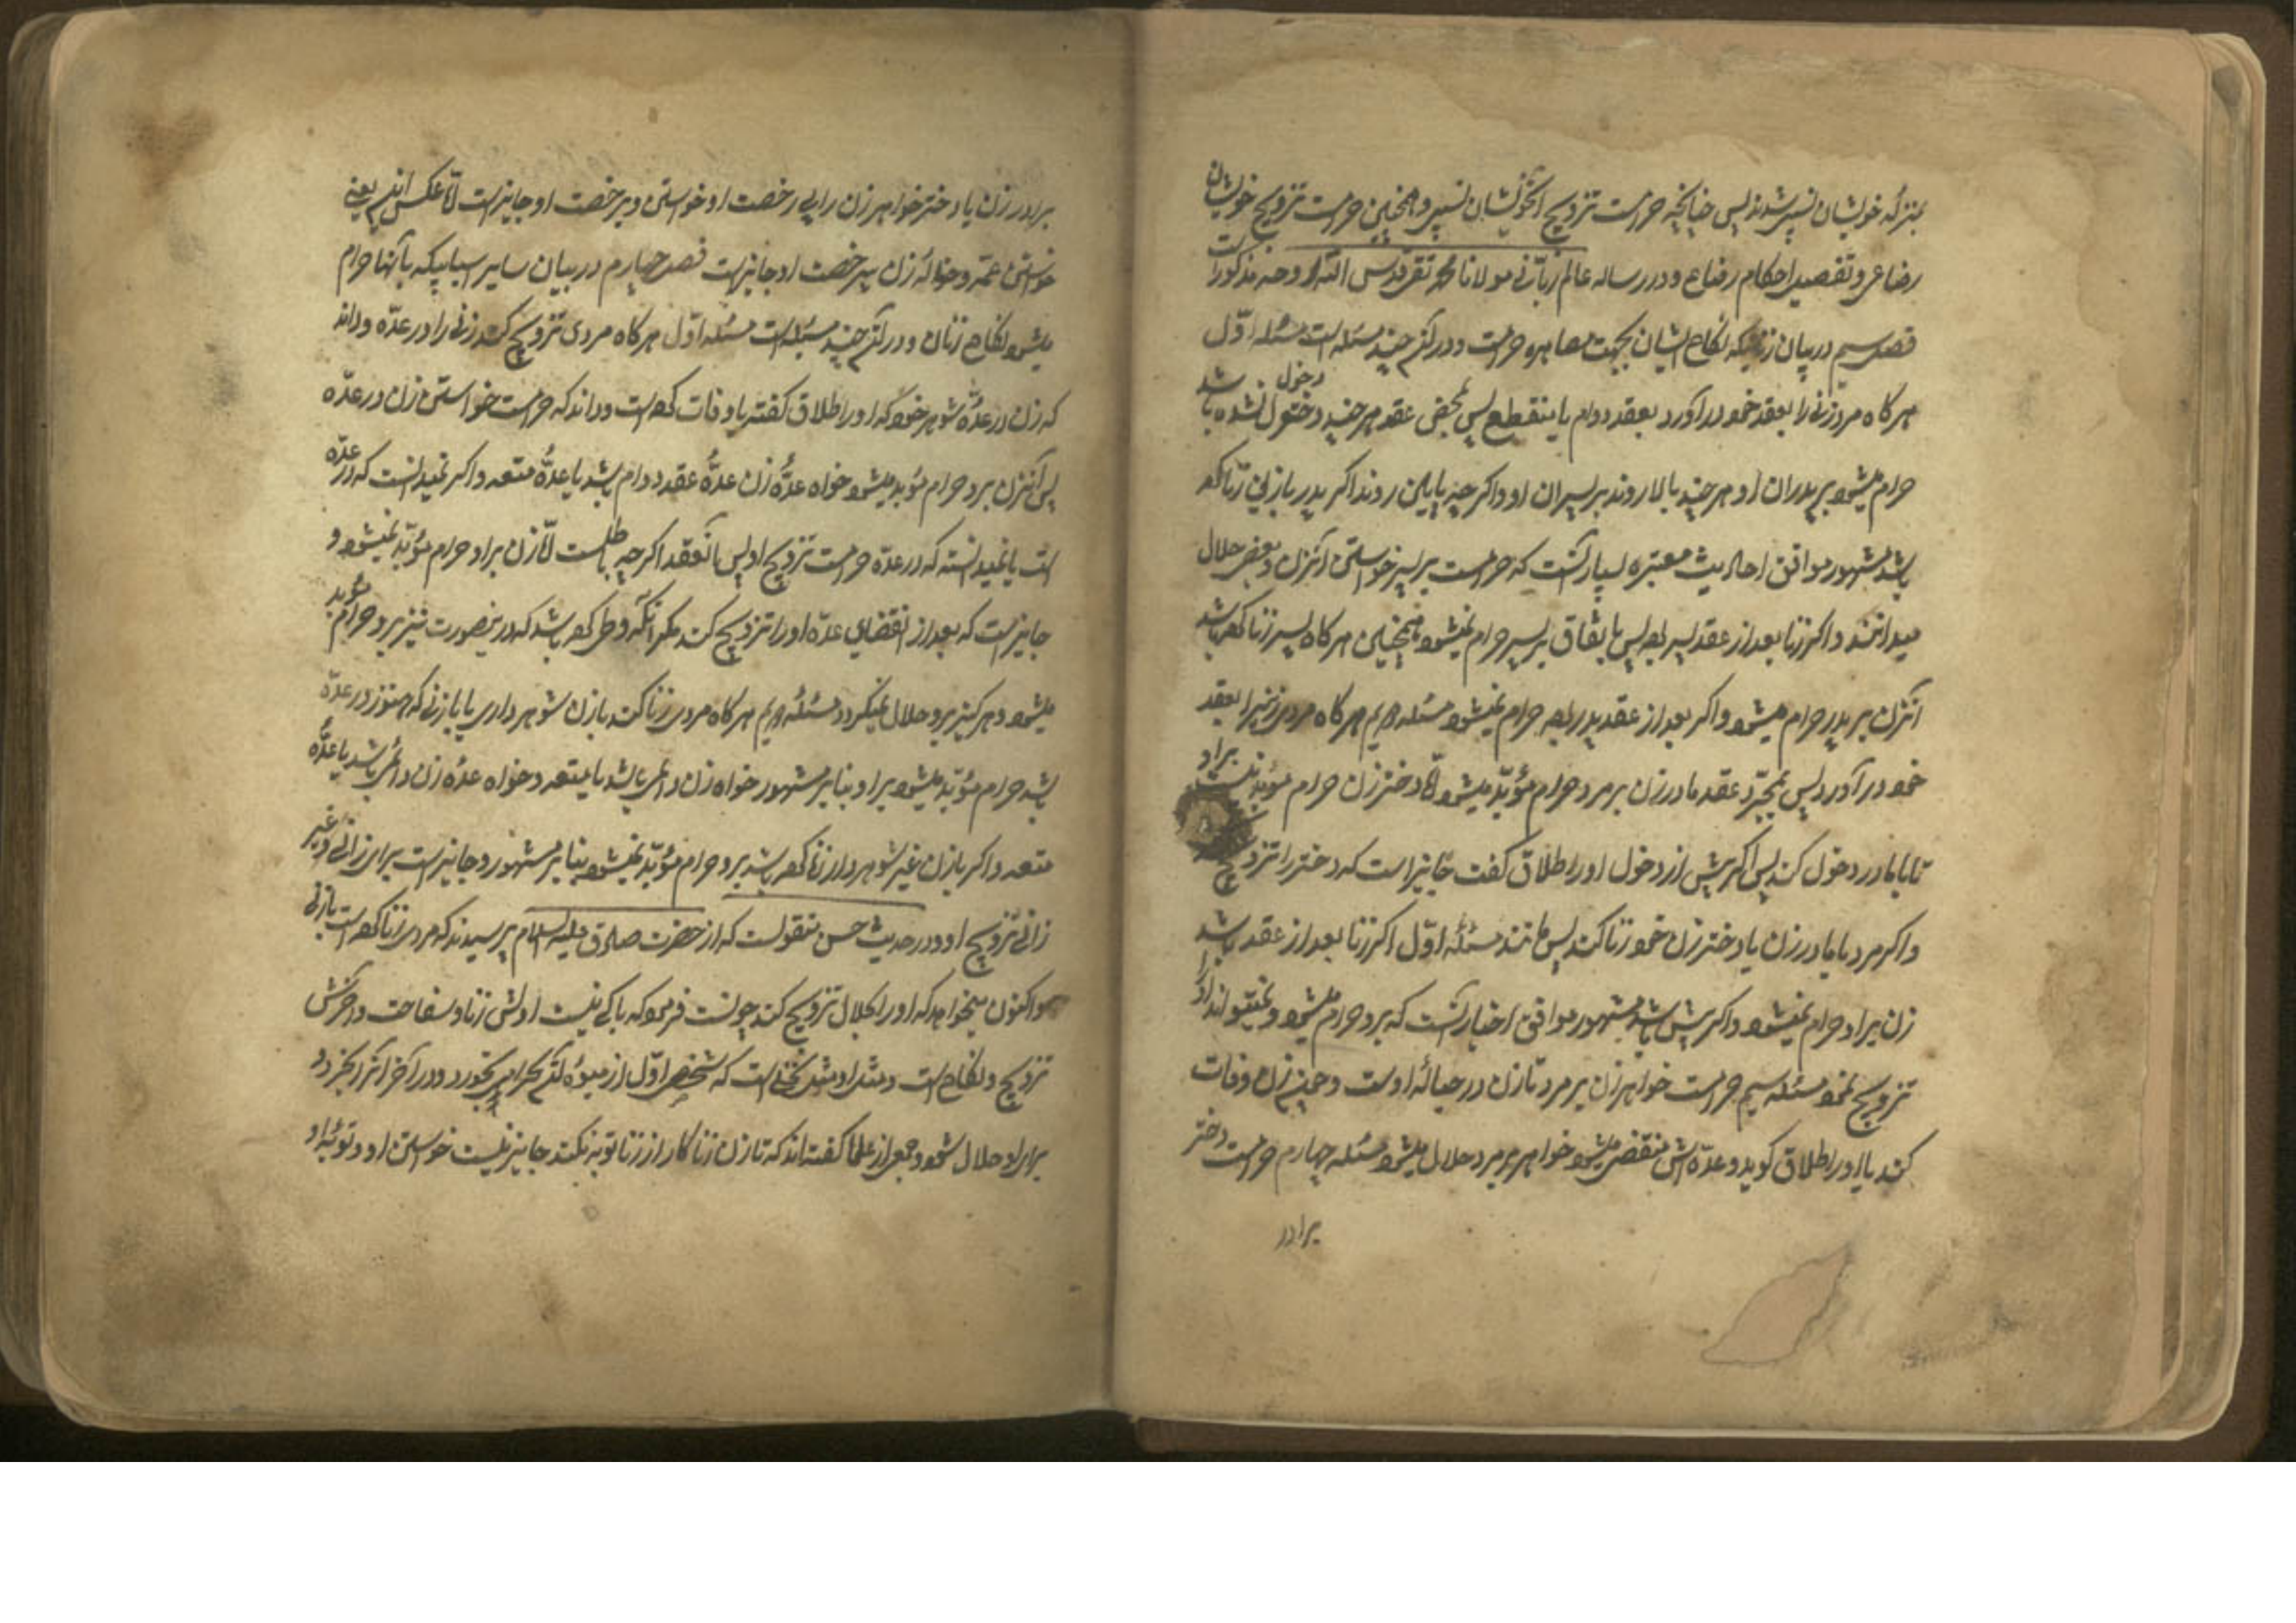 بمنزله خویشان نسبی شدند پس چنانچه حرامست تزویج خویشان نسبی و همچنین حرامست تزویج خویشان
رضاعی و تفصیل احکام رضاع و در رساله عالم ربانی مولانا محمد تقی قدس الله روحه مذکور است
فصل سیم در بیان زنانیکه نکاح ایشان بجهت مصاهره حرامست و در آن چند مسئله است مسئله اوّل
هر کاه مرد زنی را بعقد خود در آورد بعقد دوام یا منقطع پس بمحض عقد هر چند دخول نشده باشد
حرام میشود بر پدران او هر چند بالا روند بر پسران او و اکر چه پایین روند اکر پدر با زنی زنا کرده
باشد مشهور موافق احادیث معتبره بسیار آنست که حرامست بر پسر خواستن آنزن و بعضی حلال
میدانند و اکر زنا بعد از عقد پسر بوده پس باتفاق بر پسر حرام نمیشود و همچنین هر کاه پسر زنا کرده باشد
آنزن بر پدر حرام میشود و اکر بعد از عقد پدر بوده حرام نمیشود مسئله دویم هر کاه مردی زنیرا بعقد
خود در آورد پس بمجرّد عقد مادر زن بر مرد حرام مؤبّد میشود امّا دختر زن حرام مؤبد نیست بر او
تا با مادر دخول کند پس اکر پیش از دخول او را طلاق کفت جایز است که دختر را تزویج
و اکر مرد با مادر زن یا دختر زن خود زنا کند پس مانند مسئلهٔ اوّل اکر زنا بعد از عقد باشد
زن بر او حرام نمیشود و اکر پیش باشد مشهور موافق اخبار آنست که بر او حرام میشود و نمیتواند او را
تزویج نمود مسئله سیم حرامست خواهر زن بر مرد تا زن در حباله اوست و چون زن وفات
کند یا او را طلاق کوید و عدّه اش منقضی میشود خواهر بر مرد حلال میشود مسئله چهارم حرامست دختر
برادر
برادر زن یا دختر خواهر زن را بی رخصت او خواستن و بر خصت او جایز است امّا عکس اینهم یعنی
خواستن عمّه و خالهٔ زن بی رخصت او جایز است فصل چهارم در بیان سایر اسبابیکه بآنها حرام
میشود نکاح زنان و در آن چند مسئله است مسئله اوّل هر کاه مردی تزویج کند زنی را در عدّه و داند
که زن در عدّهٔ شوهر خود که او را طلاق کفته یا وفات کرده است و داند که حرامست خواستن زن در عدّه
پس آنزن بر او حرام مؤبد میشود خواه عدّهٔ زن عدّهٔ عقد دوام باشد یا عدّهٔ متعه و اکر نمیدانست که در عدّه
است یا نمیدانسته که در عدّه حرامست تزویج او پس آنعقد اکر چه باطلست امّا زن بر او حرام مؤبّد نمیشود و
جایز است که بعد از انقضای عدّه او را تزویج کند مکر آنکه وطی کرده باشد که در ینصورت نیز بر او حرام مؤبد
میشود و هر کز بر او حلال نمیکردد مسئله دویم هر کاه مردی زنا کند با زن شوهر داری یا با زنی که هنوز در عدّه
باشد حرام مؤبّد میشود بر او بنا بر مشهور خواه زن دائمی باشد یا متعه و خواه عدّه زن دائمی باشد یا عدّهٔ
متعه و اکر با زن غیر شوهر دار زنا کرده باشد بر او حرام مؤبّد نمیشود بنا بر مشهور و جایز است برای زانی و غیر
زانی تزویج او و در حدیث حسن منقولست که از حضرت صادق علیه السلام پرسیدند که مردی زنا کرده است با زنی
و اکنون میخواهد که او را بحلال تزویج کند چونست فرمود که باکی نیست اولش زنا و سفاحت و آخرش
تزویج و نکاح است و مثل او مثل نخلی است که شخصی اوّل از میوهٔ آن بحرام بخورد و در آخر آنرا بخرد و
برای او حلال شود و جمعی از علما کفته اند که تا زن زنا کار از زنا توبه نکند جایز نیست خواستن او و توبهٔ او